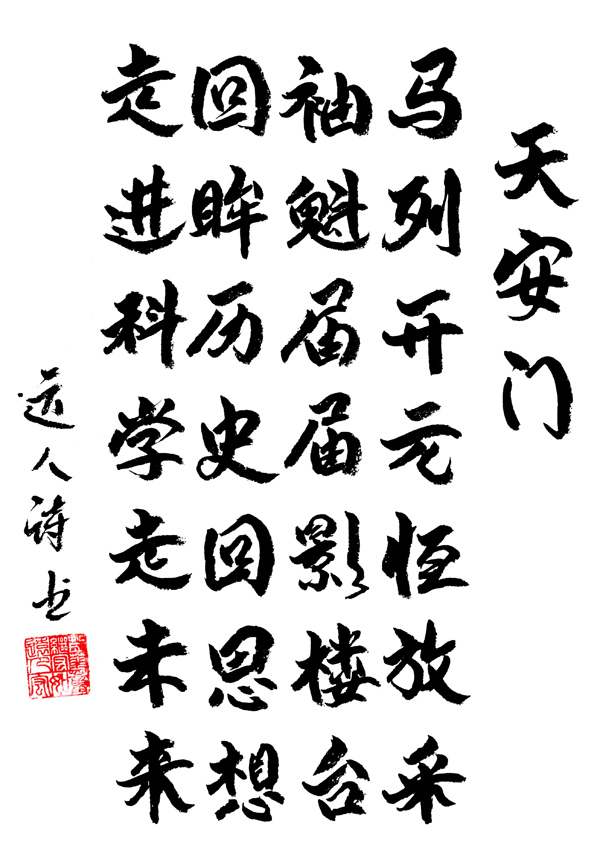 天安门
马列开元恒放采
袖魁届届影楼台
回眸历史回思想
走进科学走未来
远人诗书